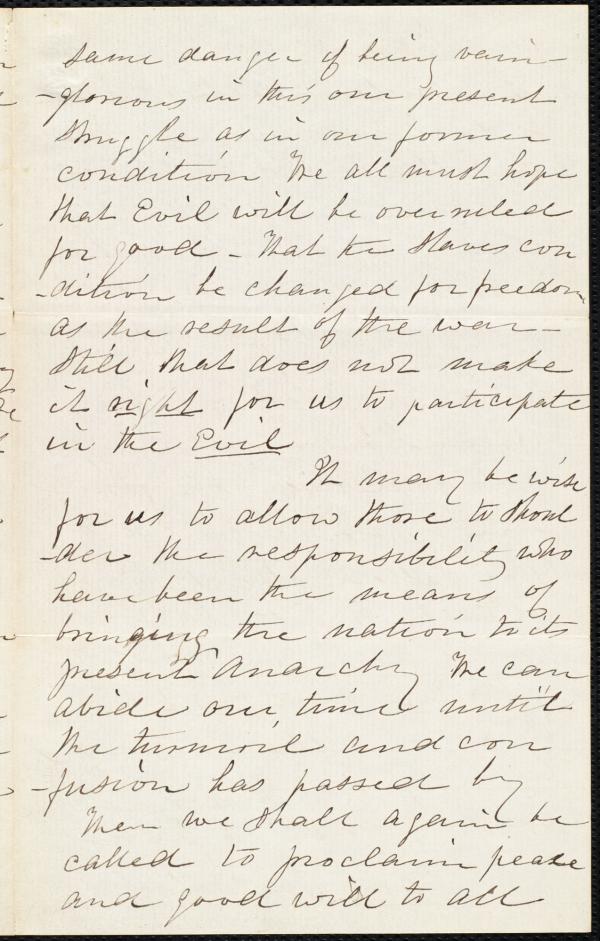 same danger of being vain-
-glorious in this our present
struggle as in our former
condition We all must hope
that Evil will be overruled
for good - That the slaves con
-dition be changed for freedom
as the result of the war -
Still that does not make
it right for us to participate
in the Evil
It may be wise
for us to allow those to shoul
-der the responsibility who
have been the means of
bringing the nation to its
present Anarchy We can
abide our time until
the turmoil and con
-fusion has passed by
Then we shall again be
called to proclaim peace
and good will to all